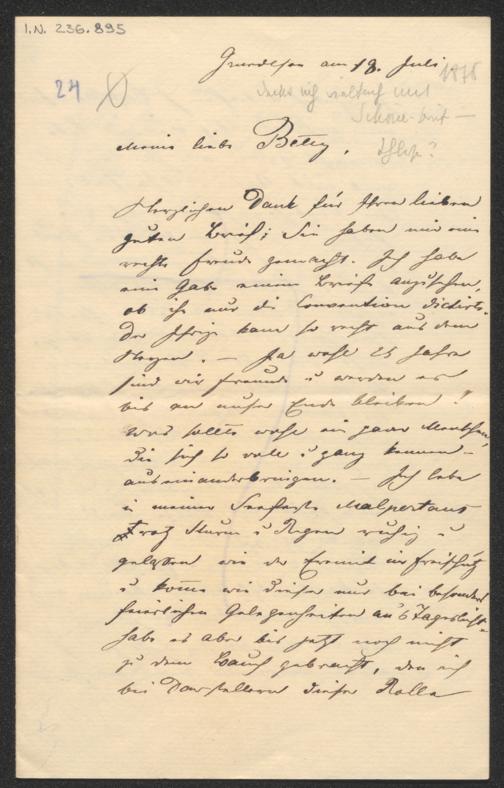 I.N. 236.895
24
Grundlsee am 18. Juli 1878
Meine liebe Betty,
Herzlichen Dank für Ihren lieben
guten Brief; Sie haben mir eine
rechte Freude gemacht. Ich habe
eine Gabe einem Briefe anzusehen,
ob ihn nur die Convention dictirte.
Der Ihrige kam so recht aus dem
Herzen. — Ja wohl 25 Jahre
sind wir Freunde u werden es
bis an unser Ende bleiben!
Was sollte wohl ein paar Menschen,
die sich so wohl u ganz kennen —
auseinanderbringen. — Ich lebe
in meiner Seefeste Malpertaus
Trotz Sturm u Regen ruhig u
gelassen wie der Eremit im Freischütz
u komme wie dieser nur bei besonders
feierlichen Gelegenheiten an's Tageslicht
habe es aber bis jetzt noch nicht
zu dem Bauch gebracht, den ich
bei Darstellern dieser Rolle